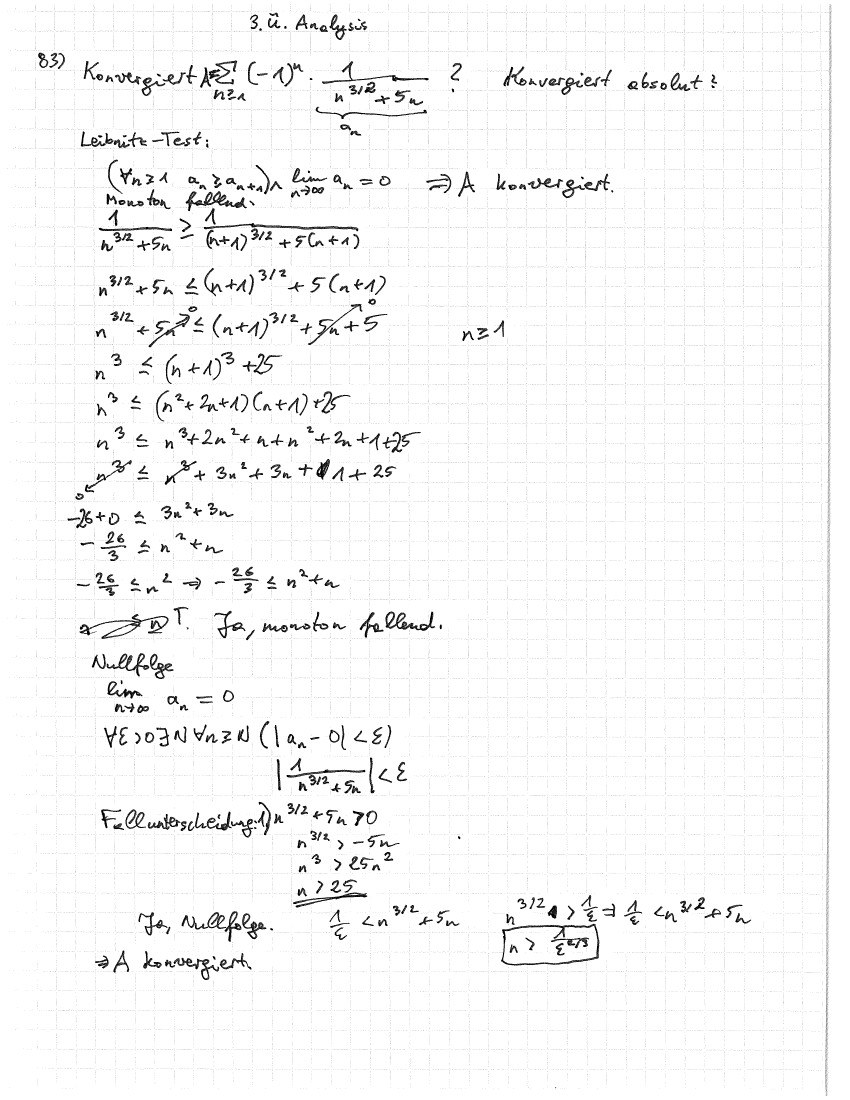 3. Ü. Analysis
83) Konvergiert A=∑_{n≥1} (-1)^n · 1/(n^{3/2}+5n) ? Konvergiert absolut?
a_n
Leibnitz-Test:
(∀n≥1 a_n ≥ a_{n+1}) ∧ lim_{n→∞} a_n = 0 ⇒ A konvergiert.
Monoton fallend:
1/(n^{3/2}+5n) ≥ 1/((n+1)^{3/2}+5(n+1))
n^{3/2}+5n ≤ (n+1)^{3/2}+5(n+1)
n^{3/2}+5n ≤ (n+1)^{3/2}+5n+5 n≥1
n^3 ≤ (n+1)^3+25
n^3 ≤ (n^2+2n+1)(n+1)+25
n^3 ≤ n^3+2n^2+n+n^2+2n+1+25
n^3 ≤ n^3+3n^2+3n+1+25
-26+0 ≤ 3n^2+3n
-26/3 ≤ n^2+n
-26/3 ≤ n^2 ⇒ -26/3 ≤ n^2+n
T. Ja, monoton fallend.
Nullfolge
lim_{n→∞} a_n = 0
∀ε>0∃N∀n≥N (|a_n-0|<ε)
|1/(n^{3/2}+5n)|<ε
Fallunterscheidung: 1) n^{3/2}+5n>0
n^{3/2}>-5n
n^3>25n^2
n>25
Ja, Nullfolge. 1/ε < n^{3/2}+5n n^{3/2} > 1/ε ⇒ 1/ε < n^{3/2}+5n
n > 1/ε^{2/3}
⇒ A konvergiert.